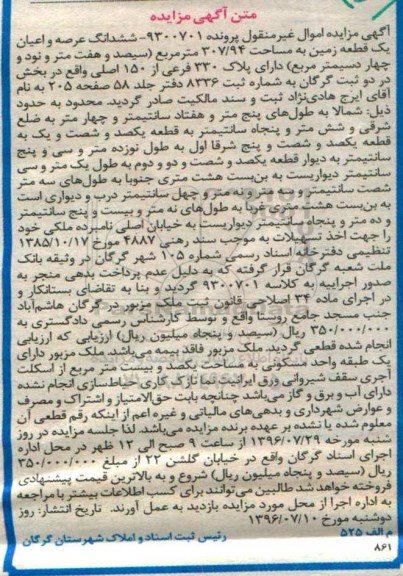 متن آگهی مزایده
آگهی مزایده اموال غیرمنقول پرونده ۹۳۰۰۷۰۱- ششدانگ عرصه و اعیان
یک قطعه زمین به مساحت ۳۰۷/۹۴ مترمربع (سیصد و هفت متر و نود و
چهار دسیمتر مربع) دارای پلاک ۳۳۰ فرعی از ۱۵۰ اصلی واقع در بخش
دو ثبت گرگان به شماره ثبت ۸۳۳۶ دفتر جلد ۵۸ صفحه ۲۰۵ به نام
آقای ایرج هادی‌نژاد ثبت و سند مالکیت صادر گردید. محدود به حدود
ذیل: شمالا به طول‌های پنج متر و هفتاد سانتیمتر و چهار متر به ضلع
شرقی و شش متر و پنجاه سانتیمتر به قطعه یکصد و شصت و یک به
قطعه یکصد و شصت و پنج شرقا اول به طول نوزده متر و سی و پنج
سانتیمتر به دیوار قطعه یکصد و شصت و دو و دوم به طول یک متر و سی
سانتیمتر دیواریست به بن‌بست هشت متری جنوبا به طول‌های سه متر
شصت سانتیمتر و سه متر و نه متر و چهل سانتیمتر درب و دیواری است
به بن‌بست هشت متری غربا به طول‌های نه متر و بیست و پنج سانتیمتر
و ده متر و پنجاه سانتیمتر دیواریست به خیابان اصلی نامبرده ملکی خود
را جهت اخذ تسهیلات به موجب سند رهنی ۴۸۸۷ مورخ ۱۳۸۵/۱۰/۱۷
تنظیمی دفترخانه اسناد رسمی شماره ۱۰۵ شهر گرگان در وثیقه بانک
ملت شعبه گرگان قرار گرفته که به دلیل عدم پرداخت بدهی منجر به
صدور اجراییه به کلاسه ۹۳۰۰۷۰۱ گردید و بنا به تقاضای بستانکار و
در اجرای ماده ۳۴ اصلاحی قانون ثبت ملک مزبور در گرگان هاشم‌آباد
جنب مسجد جامع روستا واقع و توسط کارشناس رسمی دادگستری به
۳۵۰/۰۰۰/۰۰۰ ریال (سیصد و پنجاه میلیون ریال) ارزیابی که ارزیابی
انجام شده قطعی گردید. ملک مزبور فاقد بیمه می‌باشد. ملک مزبور دارای
یک طبقه واحد مسکونی به مساحت یکصد و بیست متر مربع از اسکلت
آجری سقف شیروانی ورق ایرانیت نما نازک کاری حیاط‌سازی انجام نشده
دارای آب و برق و گاز می‌باشد چنانچه بابت حق‌الامتیاز و اشتراک و مصرف
و عوارض شهرداری و بدهی‌های مالیاتی و غیره اعم از اینکه رقم قطعی آن
معلوم شده یا نشده بر عهده برنده مزایده می‌باشد. لذا جلسه مزایده در روز
شنبه مورخه ۱۳۹۶/۰۷/۲۹ از ساعت ۹ صبح الی ۱۲ ظهر در محل اداره
اجرای اسناد گرگان واقع در خیابان گلشن ۲۲ از مبلغ ۳۵۰/۰۰۰/۰۰۰
ریال (سیصد و پنجاه میلیون ریال) شروع و به بالاترین قیمت پیشنهادی
فروخته خواهد شد طالبین می‌توانند برای کسب اطلاعات بیشتر با مراجعه
به اداره اجرا از محل مورد مزایده بازدید به عمل آورند. تاریخ انتشار: روز
دوشنبه مورخ ۱۳۹۶/۰۷/۱۰
م الف ۵۲۵
رئیس ثبت اسناد و املاک شهرستان گرگان
۸۶۱